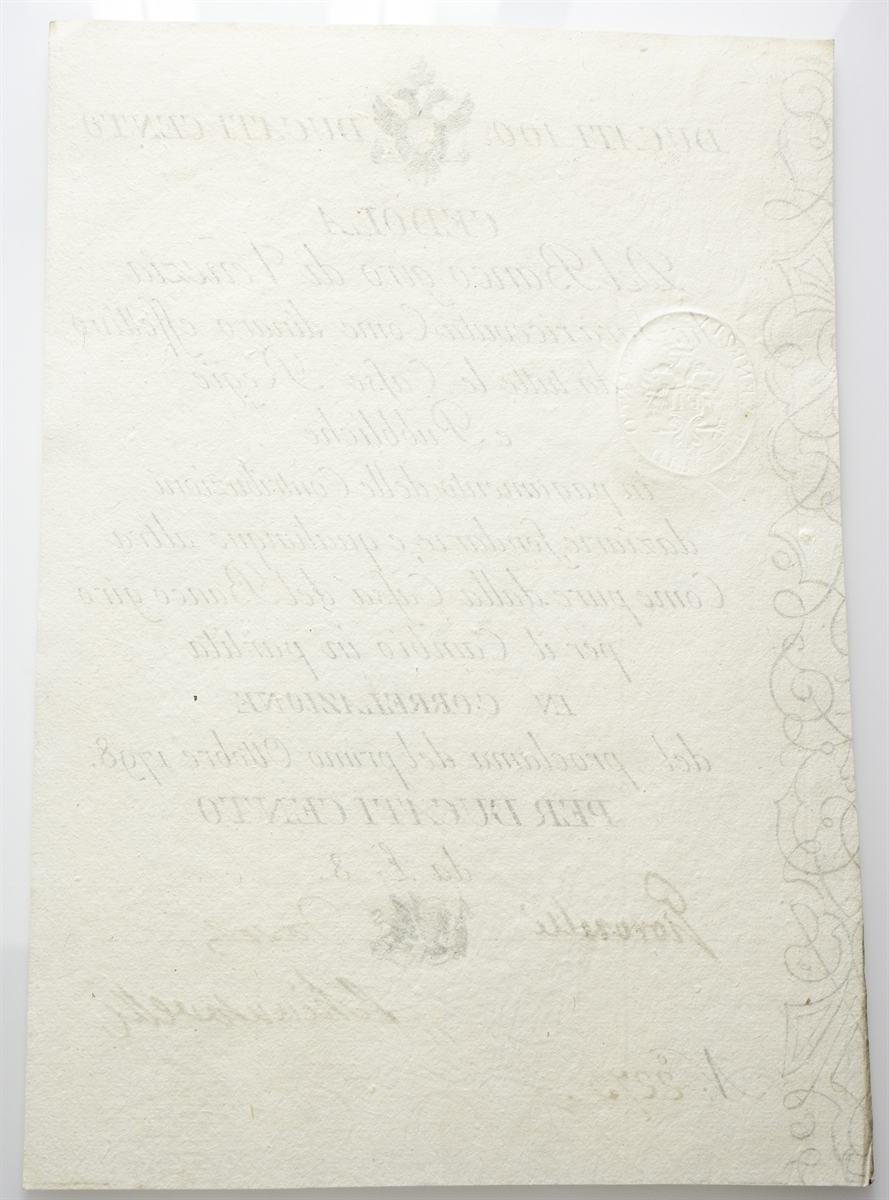 DUCATI 100. DUCATI CENTO
CEDOLA
Del Banco giro di Venezia
ricevuta Come dinaro effettivo
da tutte le Casse Regie
e Pubbliche
in pagamento delle Contribuzioni
daziarie, fondarie, e qualunque altra
Come pure dalla Cassa del Banco giro
per il Cambio in partita
IN CORRELAZIONE
del proclama del primo Ottobre 1798.
PER DUCATI CENTO
da L. 8.
Giovanelli